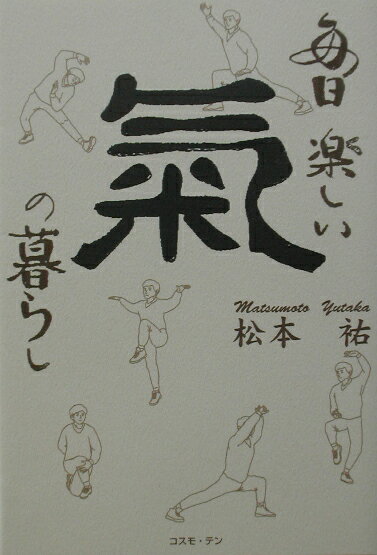 毎日楽しい
氣
の暮らし
Matsumoto Yutaka
松本 祐
コスモ・テン